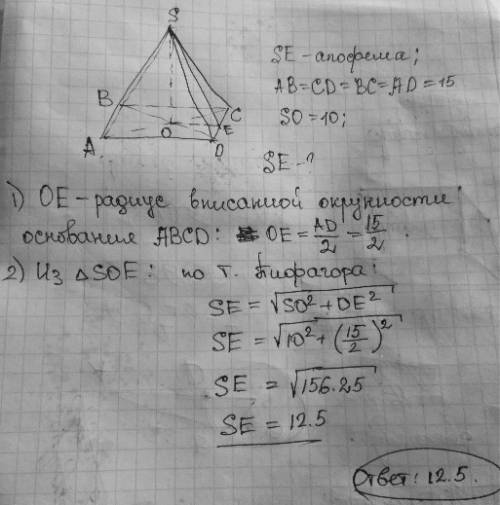 S
B
C
A
O
E
D
SE - апофема;
AB=CD=BC=AD=15
SO=10;
SE - ?
1) OE - радиус вписанной окружности
основания ABCD: OE = AD/2 = 15/2.
2) Из ΔSOE: по т. Пифагора:
SE = √(SO² + OE²)
SE = √(10² + (15/2)²)
SE = √156.25
SE = 12.5
Ответ: 12.5.